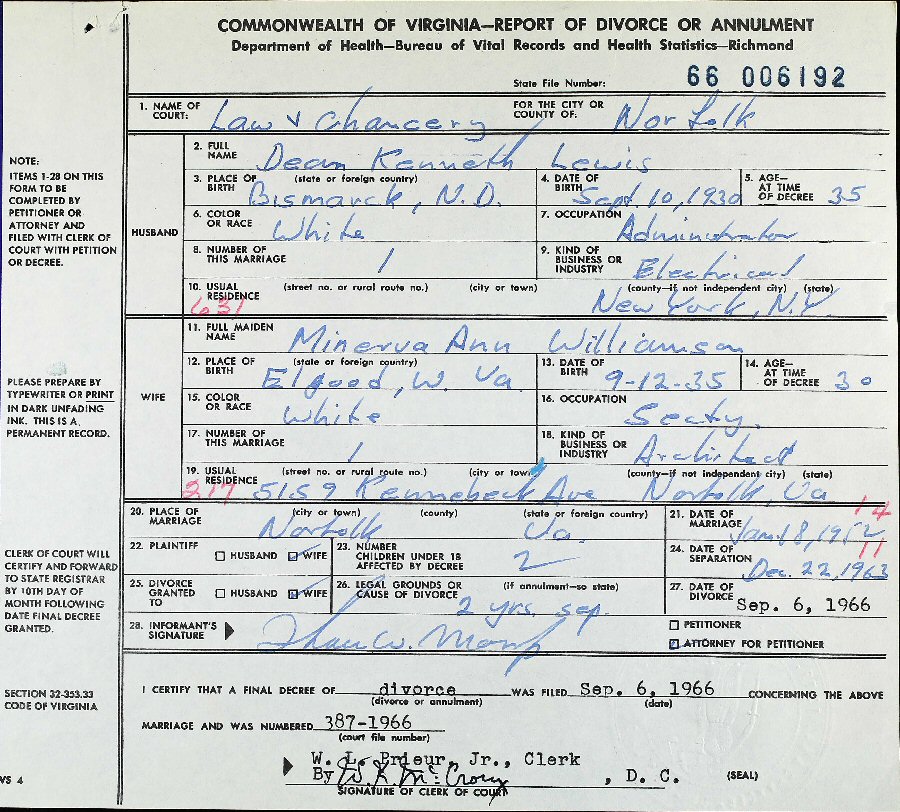 COMMONWEALTH OF VIRGINIA—REPORT OF DIVORCE OR ANNULMENT
Department of Health—Bureau of Vital Records and Health Statistics—Richmond
State File Number: 66 006192
1. NAME OF COURT: Law & Chancery FOR THE CITY OR COUNTY OF: Norfolk
NOTE:
ITEMS 1-28 ON THIS
FORM TO BE
COMPLETED BY
PETITIONER OR
ATTORNEY AND
FILED WITH CLERK OF
COURT WITH PETITION
OR DECREE.
HUSBAND
2. FULL NAME Dean Kenneth Lewis
3. PLACE OF BIRTH (state or foreign country) Bismarck, N.D. 4. DATE OF BIRTH Sept. 10, 1930 5. AGE— AT TIME OF DECREE 35
6. COLOR OR RACE White 7. OCCUPATION Administrator
8. NUMBER OF THIS MARRIAGE 1 9. KIND OF BUSINESS OR INDUSTRY Electrical
10. USUAL RESIDENCE (street no. or rural route no.) (city or town) (county—if not independent city) (state)
631 New York, N.Y.
PLEASE PREPARE BY
TYPEWRITER OR PRINT
IN DARK UNFADING
INK. THIS IS A
PERMANENT RECORD.
WIFE
11. FULL MAIDEN NAME Minerva Ann Williamson
12. PLACE OF BIRTH (state or foreign country) Elgood, W. Va. 13. DATE OF BIRTH 9-12-35 14. AGE— AT TIME OF DECREE 30
15. COLOR OR RACE White 16. OCCUPATION Secty.
17. NUMBER OF THIS MARRIAGE 1 18. KIND OF BUSINESS OR INDUSTRY Architect
19. USUAL RESIDENCE (street no. or rural route no.) (city or town) (county—if not independent city) (state)
217 5159 Kennebeck Ave Norfolk, Va
20. PLACE OF MARRIAGE (city or town) (county) (state or foreign country) Norfolk Va. 21. DATE OF MARRIAGE Jan. 18, 1952 14
CLERK OF COURT WILL
CERTIFY AND FORWARD
TO STATE REGISTRAR
BY 10TH DAY OF
MONTH FOLLOWING
DATE FINAL DECREE
GRANTED.
22. PLAINTIFF HUSBAND WIFE 23. NUMBER CHILDREN UNDER 18 AFFECTED BY DECREE 2 24. DATE OF SEPARATION Dec. 22, 1963 11
25. DIVORCE GRANTED TO HUSBAND WIFE 26. LEGAL GROUNDS OR CAUSE OF DIVORCE (if annulment—so state) 2 yrs. sep. 27. DATE OF DIVORCE Sep. 6, 1966
28. INFORMANT'S SIGNATURE PETITIONER
ATTORNEY FOR PETITIONER
SECTION 32-353.33
CODE OF VIRGINIA
I CERTIFY THAT A FINAL DECREE OF divorce WAS FILED Sep. 6, 1966 CONCERNING THE ABOVE
(divorce or annulment) (date)
MARRIAGE AND WAS NUMBERED 387-1966
(court file number)
W. L. Prieur, Jr., Clerk
By W. R. McCrony, D. C. (SEAL)
SIGNATURE OF CLERK OF COURT
VS 4